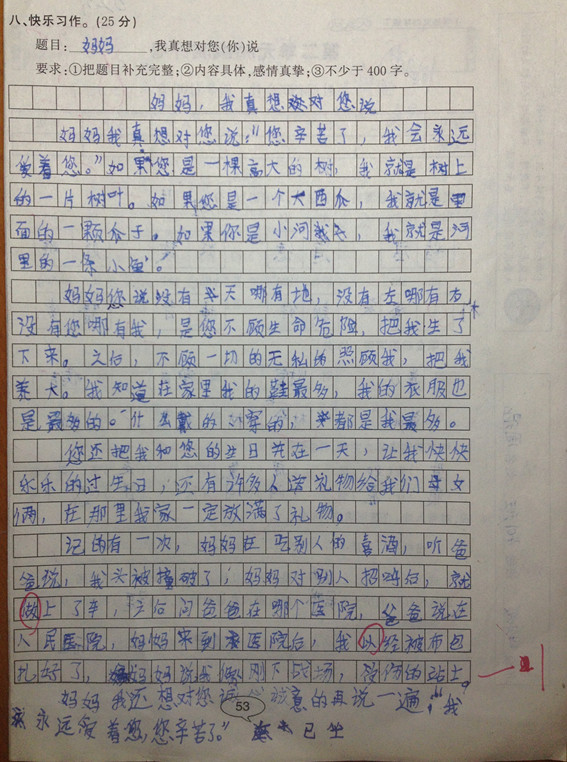 八、快乐习作。(25分)
题目：妈妈,我真想对您(你)说
要求:①把题目补充完整;②内容具体,感情真挚;③不少于400字。
妈妈，我真想对您说
妈妈我真想对您说：“您辛苦了，我会永远
爱着您。”如果您是一棵高大的树，我就是树上
的一片树叶。如果您是一个大西瓜，我就是里
面的一颗瓜子。如果你是小河，我就是河
里的一条小鱼。
妈妈您说没有天哪有地，没有左哪有右，
没有您哪有我，是您不顾生命危险，把我生了
下来。之后，不顾一切的无私的照顾我，把我
养大。我知道在家里我的鞋最多，我的衣服也
是最多的。什么戴的、穿的，都是我最多。
您还把我和您的生日并在一天，让我快快
乐乐的过生日，还有许多人送礼物给我们母女
俩，在那里我家一定放满了礼物。
记的有一次，妈妈在吃别人的喜酒，听爸
爸说，我头被撞破了，妈妈对别人招呼后，就
做上了车，之后问爸爸在哪个医院，爸爸说在
人民医院，妈妈来到医院后，我以经被布包
扎好了，妈妈说我像刚下战场，伤的战士。
妈妈我还想对您诚意的再说一遍：“我
永远爱着您，您辛苦了。”
53